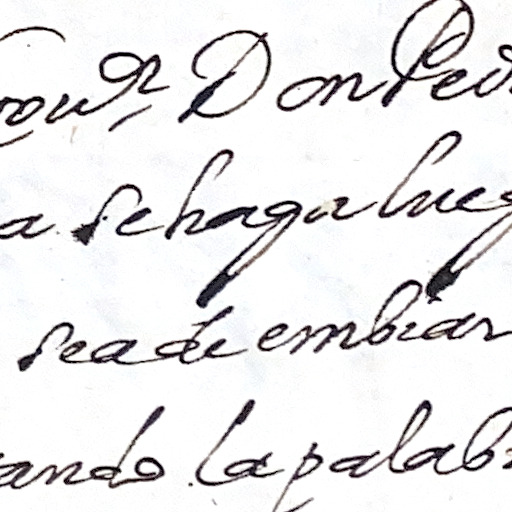 Don Ped
a se haga lueg
sea de embiar
ando la palab